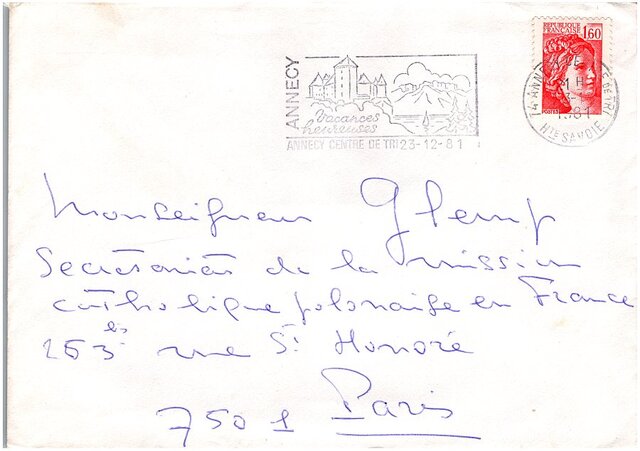 REPUBLIQUE FRANCAISE
1,60
ANNECY
Vacances
heureuses
ANNECY CENTRE DE TRI 23-12-81
1981
Hte SAVOIE
Monseigneur Glemp
Secrétariat de la mission
catholique polonaise en France
263 bis rue St Honoré
75001 Paris